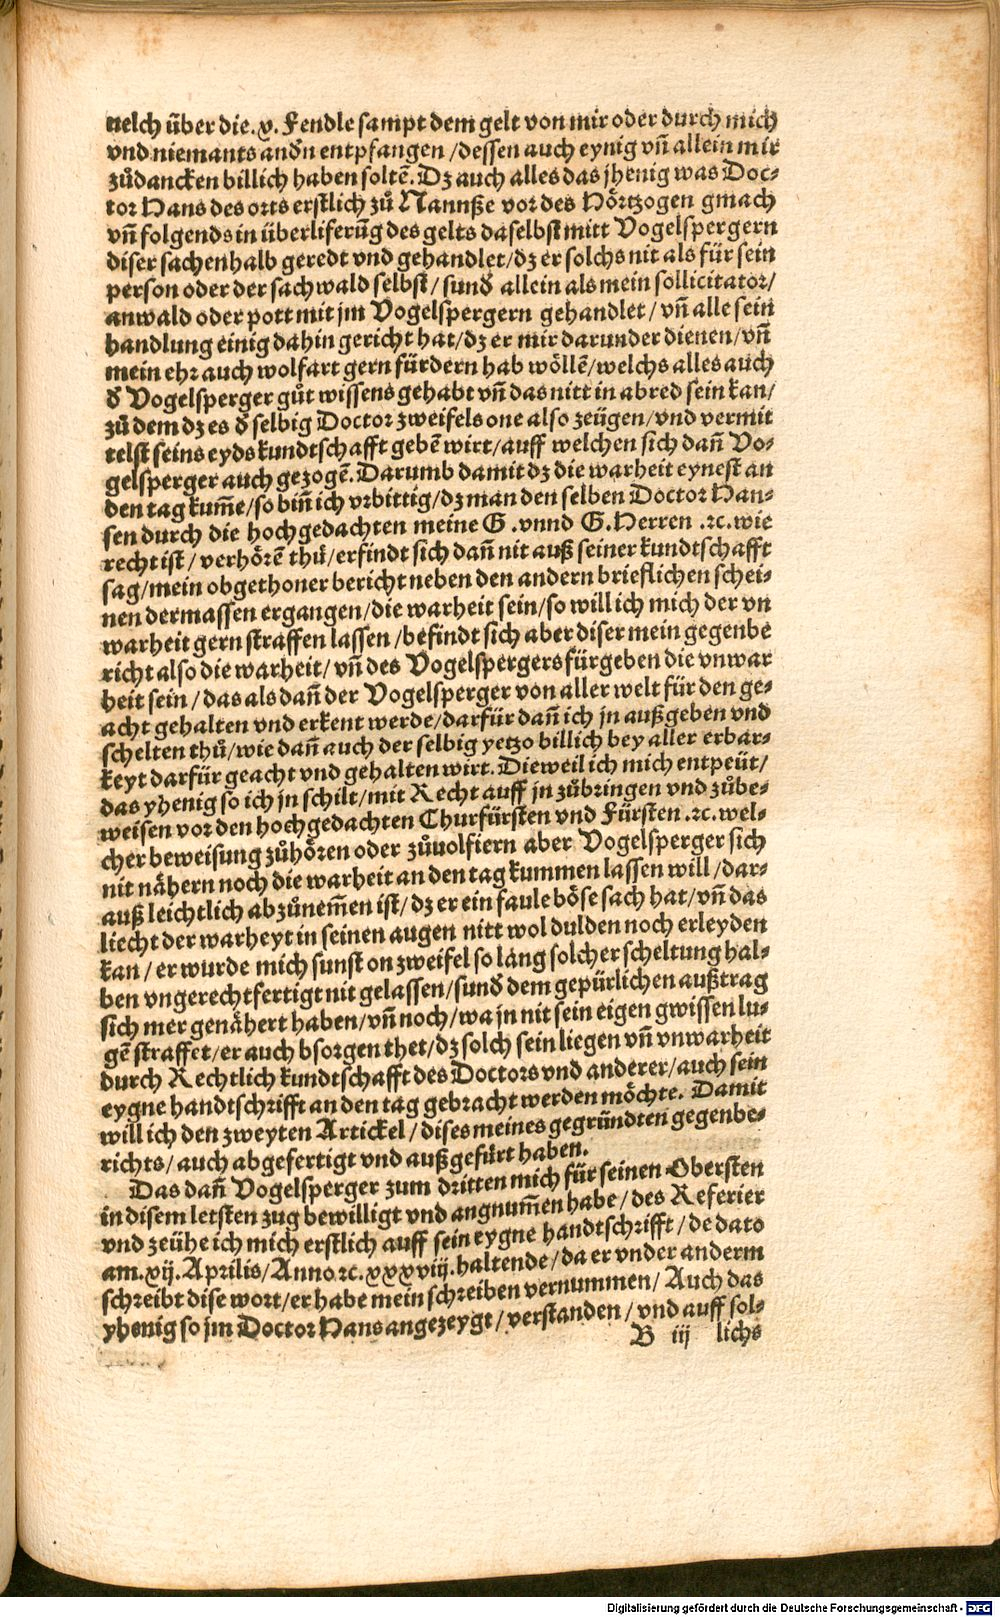 nelch über die.x. Fendle sampt dem gelt von mir oder durch mich
vnd niemants andn entpfangen /dessen auch eynig vn̄ allein mir
zůdancken billich haben soltē. Dz auch alles das jhenig was Doc⸗
tor Hans des orts erstlich zů Nannße vor des Hörtzogen gmach
vn̄ folgends in überliferūg des gelts daselbst mitt Vogelspergern
diser sachenhalb geredt vnd gehandlet/dz er solchs nit als für sein
person oder der sachwald selbst/ sund allein als mein sollicitator/
anwald oder pott mit jm Vogelspergern gehandlet / vn̄ alle sein
handlung einig dahin gericht hat/dz er mir darunder dienen/vn̄
mein ehr auch wolfart gern fürdern hab wöllē/welchs alles auch
d Vogelsperger gůt wissens gehabt vn̄ das nitt in abred sein kan/
zů dem dz es d selbig Doctor zweifels one also zeügen/vnd vermit
telst seins eyds kundtschafft gebē wirt/auff welchen sich dan̄ Vo⸗
gelsperger auch gezogē. Darumb damit dz die warheit eynest an
den tag kum̄e/so bin̄ ich vrbittig/dz man den selben Doctor Han⸗
sen durch die hochgedachten meine G .vnnd G. Herren .⁊c. wie
recht ist / verhörē thů/erfindt sich dan̄ nit auß seiner kundtschafft
sag/mein obgethoner bericht neben den andern brieflichen schei⸗
nen dermassen ergangen/die warheit sein/so will ich mich der vn
warheit gern straffen lassen /befindt sich aber diser mein gegenbe
richt also die warheit/ vn̄ des Vogelspergers fürgeben die vnwar
heit sein / das als dan̄ der Vogelsperger von aller welt für den ge⸗
acht gehalten vnd erkent werde/darfür dan̄ ich jn außgeben vnd
schelten thů/wie dan̄ auch der selbig yetzo billich bey aller erbar⸗
keyt darfür geacht vnd gehalten wirt. Dieweil ich mich entpeüt/
das yhenig so ich jn schilt/mit Recht auff jn zůbringen vnd zůbe⸗
weisen vor den hochgedachten Churfürsten vnd Fürsten .⁊c. wel⸗
cher beweisung zůhören oder zůuolfiern aber Vogelsperger sich
nit nähern noch die warheit an den tag kummen lassen will /dar⸗
auß leichtlich abzůnem̄en ist/dz er ein faule böse sach hat/vn̄ das
liecht der warheyt in seinen augen nitt wol dulden noch erleyden
kan / er wurde mich sunst on zweifel so lang solcher scheltung hal⸗
ben vngerechtfertigt nit gelassen/sund dem gepürlichen außtrag
sich mer genähert haben/vn̄ noch/wa jn nit sein eigen gwissen lu⸗
gē straffet/er auch bsorgen thet/dz solch sein liegen vn̄ vnwarheit
durch Rechtlich kundtschafft des Doctors vnd anderer/auch sein
eygne handtschrifft an den tag gebracht werden möchte. Damit
will ich den zweyten Artickel / dises meines gegründten gegenbe⸗
richts/ auch abgefertigt vnd außgefürt haben.
Das dan̄ Vogelsperger zum dritten mich für seinen Obersten
in disem letsten zug bewilligt vnd angnum̄en habe / des Referier
vnd zeühe ich mich erstlich auff sein eygne handtschrifft / de dato
am.xij. Aprilis/ Anno ⁊c. xxxviij. haltende / da er vnder anderm
schreibt dise wort/er habe mein schreiben vernummen/ Auch das
yhenig so jm Doctor Hans angezeygt / verstanden / vnd auff sol⸗
B iij lichs
Digitalisierung gefördert durch die Deutsche Forschungsgemeinschaft - DFG